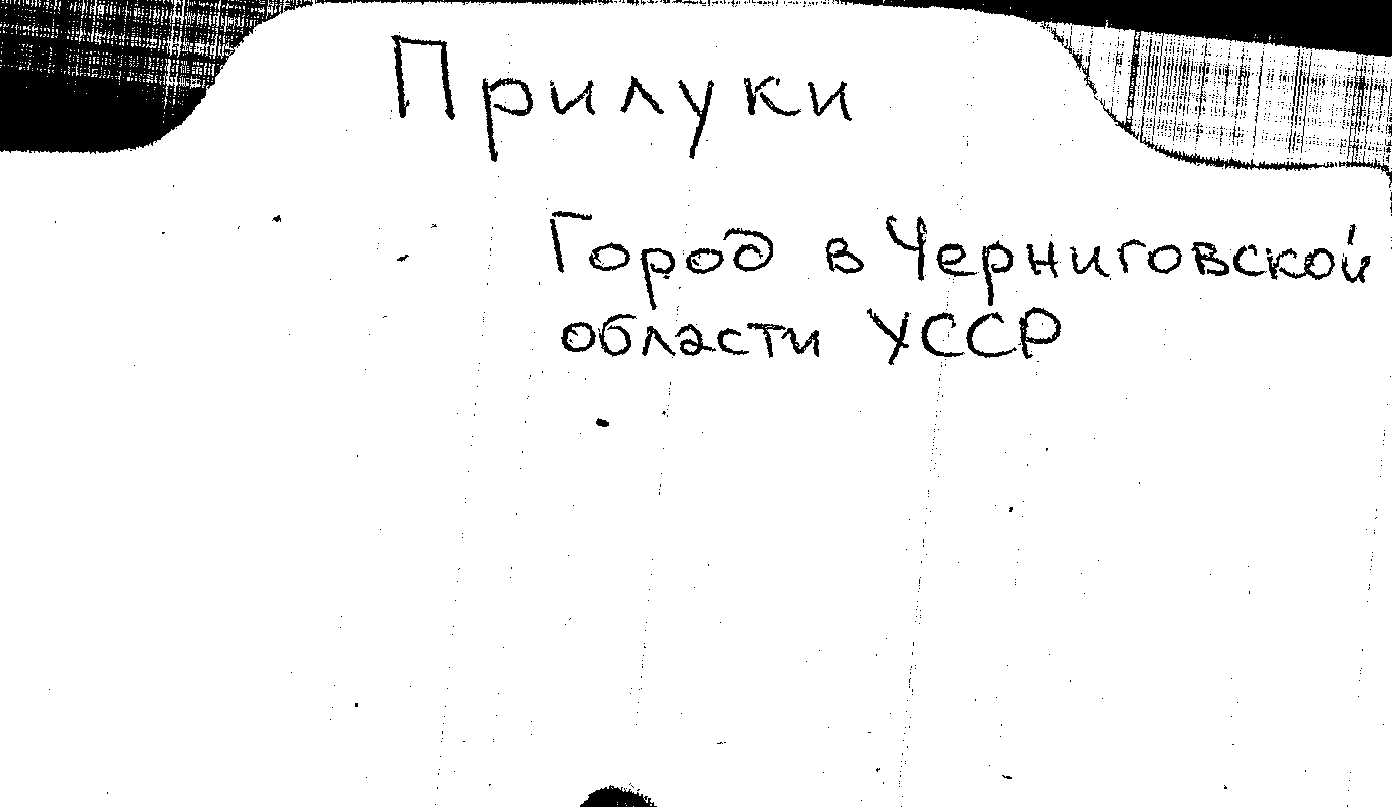 Прилуки
Город в Черниговской
области УССР